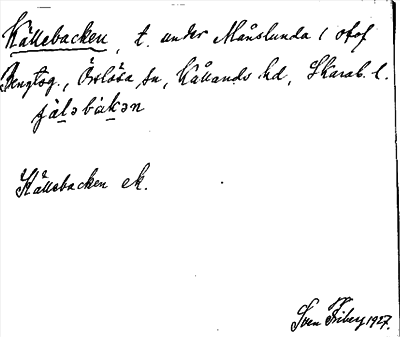 Källebacken, t. under Månslunda 1 Olof
Bengtsg., Örslösa sn, Kållands hd, Skarab. l.
jäləbàkən
Källebacken ek.
Sven Friberg 1927.